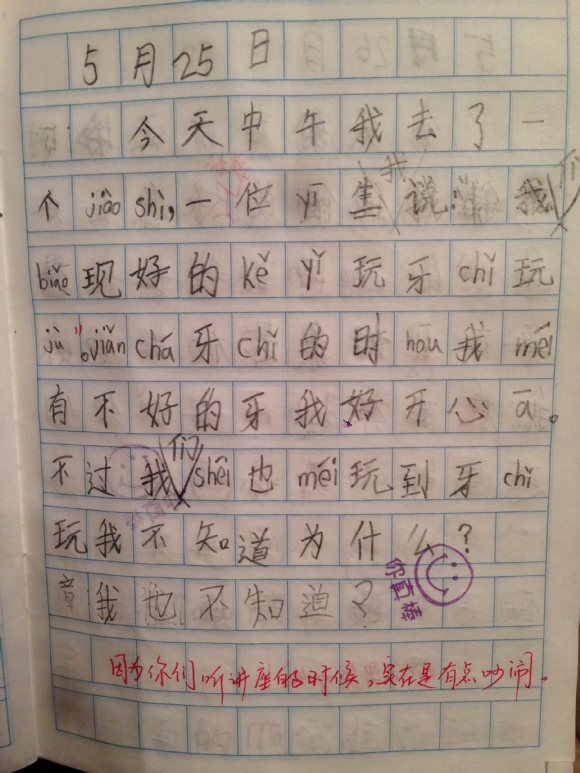 5月25日
今天中午我去了一
个jiāo shì,一位yī生说:"我们
biǎo现好的kě yǐ玩牙chǐ玩
jù"。jiǎn chá牙chǐ的时hou我méi
有不好的牙我好开心ā。
不过我们shéi也méi玩到牙chǐ
玩我不知道为什么?
我也不知道?
你真棒
因为你们听讲座的时候,实在是有点吵闹。